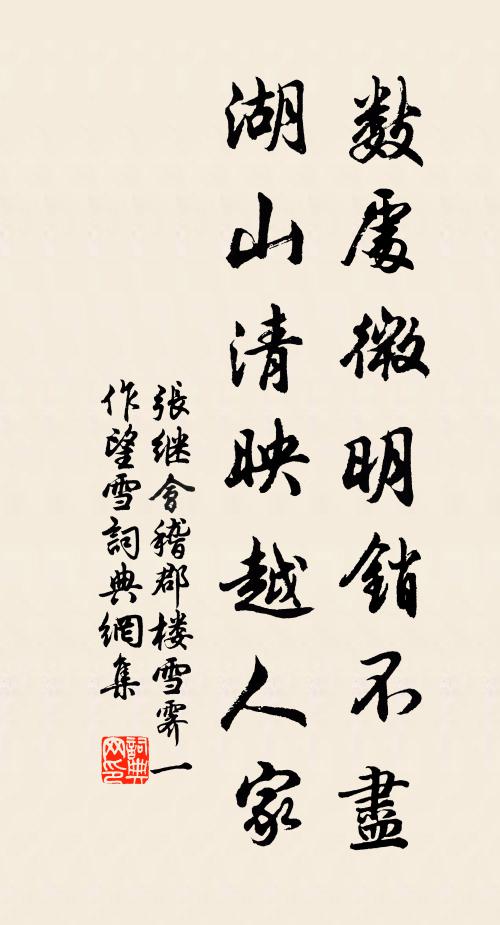 數處微明銷不盡
湖山清映越人家
張继會稽郡楼雪霽一
作望雪詞典網集
詞典
网